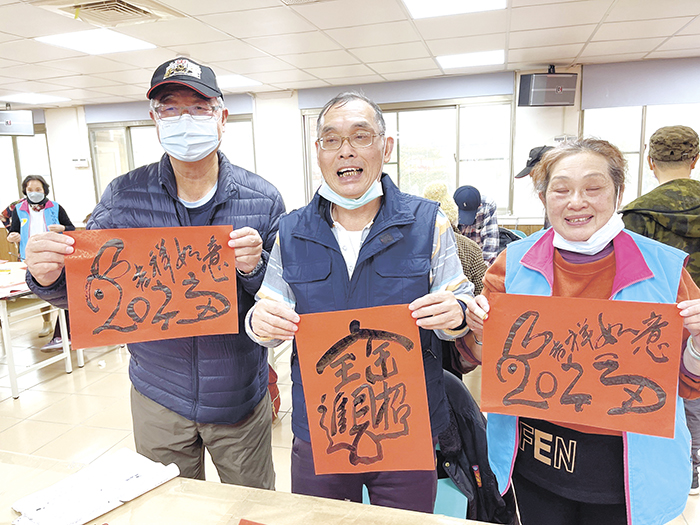 吉祥如意
2023
招財進寶
吉祥如意
2023
FEN